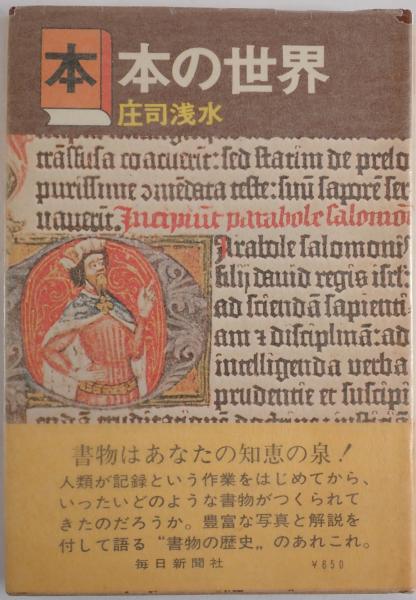 本
本の世界
庄司浅水
trãsfusa coacuerit: sed statim de prelo
purissime ɔmẽdata teste: suũ saporẽ ser
uauerit. Incipiũt parabole salomõ
Parabole salomonis
filij dauid regis isrl:
ad sciendã sapienti-
am ⁊ disciplinã: ad
intelligenda verba
prudentie et suscipi
書物はあなたの知恵の泉！
人類が記録という作業をはじめてから、
いったいどのような書物がつくられて
きたのだろうか。豊富な写真と解説を
付して語る“書物の歴史„のあれこれ。
毎日新聞社 ¥850